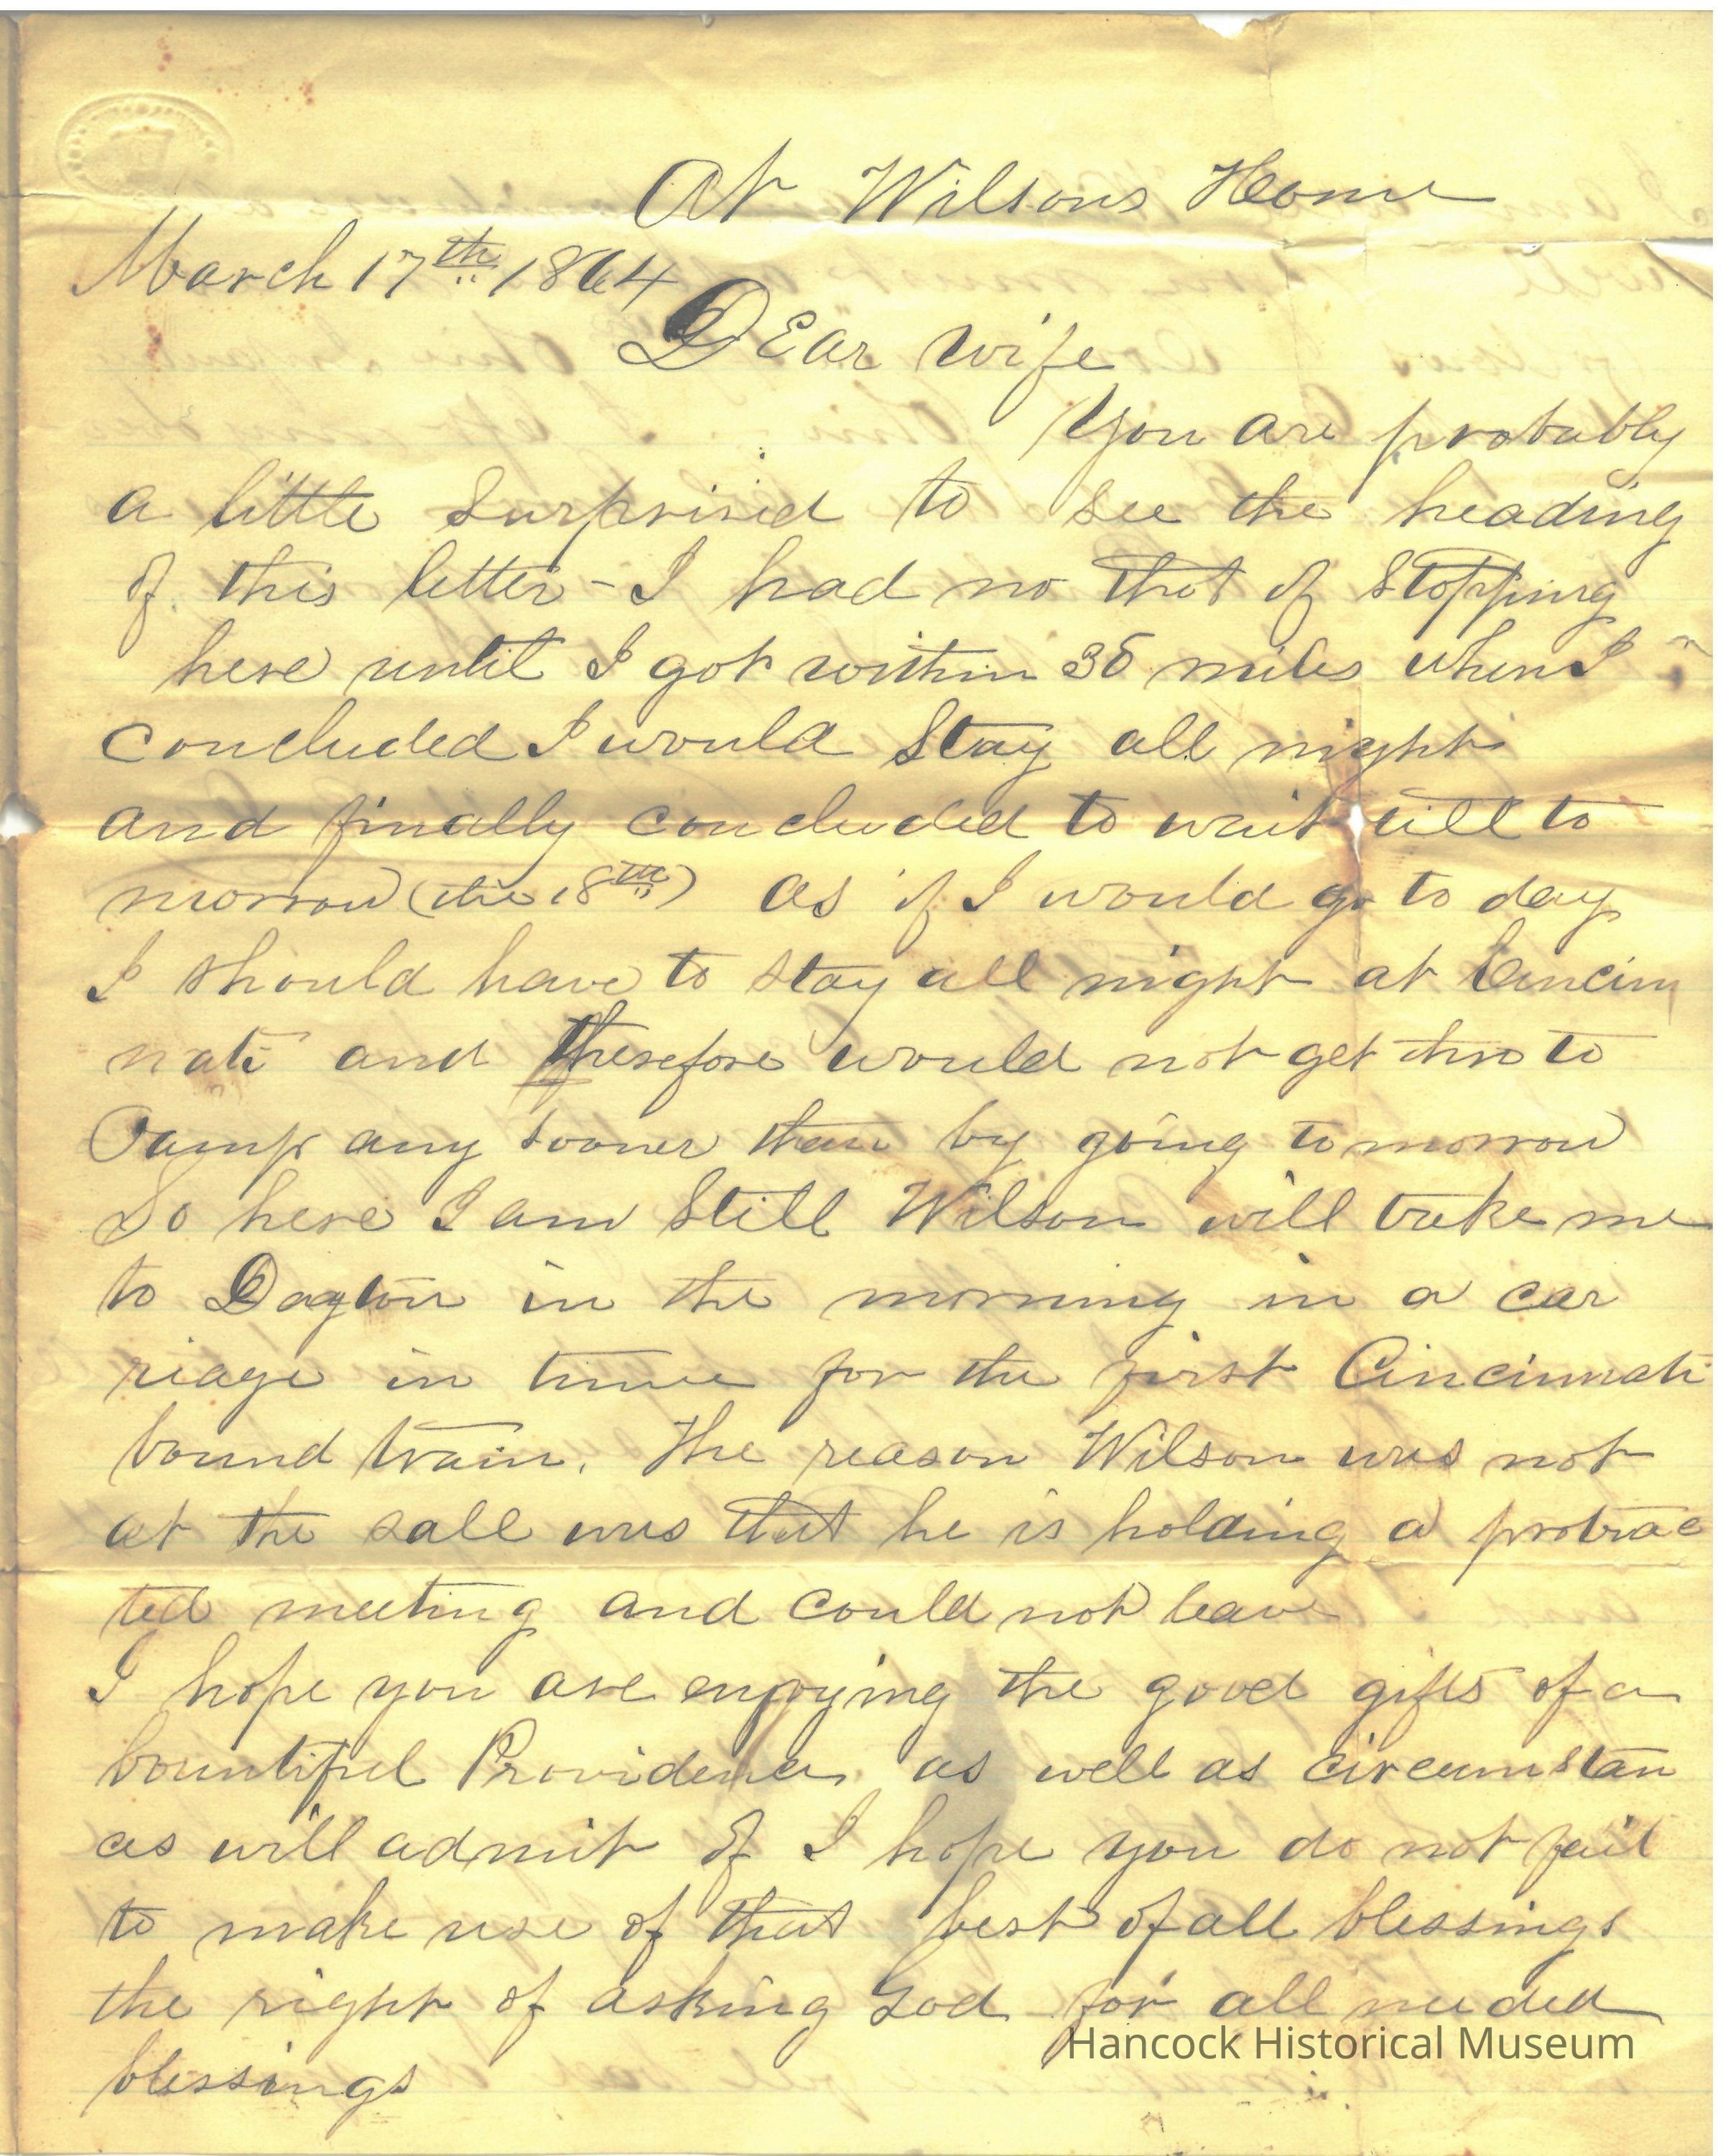 At Wilsons Home
March 17th 1864
Dear Wife
You are probably
a little surprised to see the heading
of this letter - I had no thot of stopping
here until I got within 35 miles when I
concluded I would stay all night
and finally concluded to wait till to
morrow (the 18th) as if I would go to day
I should have to stay all night at Cincin
nati and therefore would not get thro to
Camp any sooner than by going to morrow
So here I am still Wilson will take me
to Dayton in the morning in a car
riage in time for the first Cincinnati
bound train. The reason Wilson was not
at the sall was that he is holding a protrac
ted meeting and could not leave
I hope you are enjoying the good gifts of a
bountiful Providence as well as circumstan
ces will admit of I hope you do not fail
to make use of that best of all blessings
the right of asking God for all needed
blessings
Hancock Historical Museum